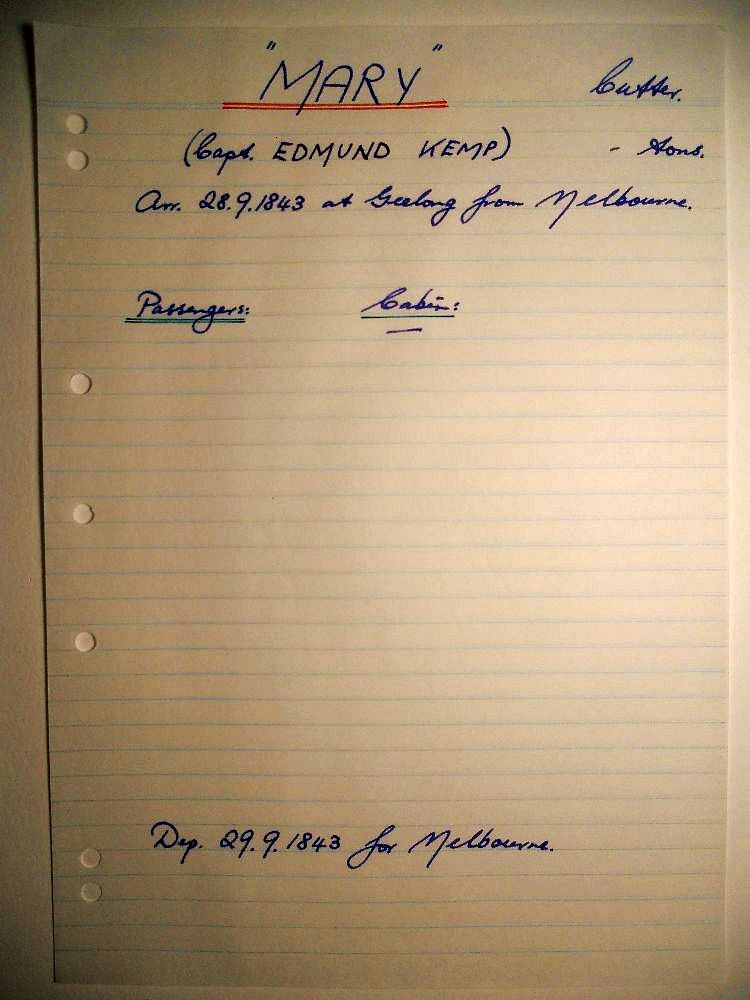 "MARY" Cutter.
(Capt. EDMUND KEMP) - tons.
Arr. 28.9.1843 at Geelong from Melbourne.
Passengers: Cabin:
—
Dep. 29.9.1843 for Melbourne.